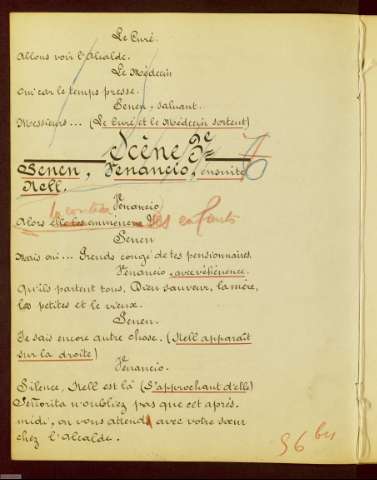 Le Curé.
Allons voir l'Alcalde.
Le Médecin
car le temps presse.
Senen, saluant.
Messieurs... (Le Curé et le Médecin sortent)
Scène 9e
Senen, Venancio, ensuite
Nell.
Venancio
Alors les enfants
Senen
Mais oui... Prends congé de tes pensionnaires
Venancio, avec véhémence.
Qu'ils partent tous, Dieu sauveur, la mère,
les petites et le vieux.
Senen.
Je sais encore autre chose. (Nell apparaît
sur la droite)
Venancio.
Silence, Nell est là (S'approchant d'elle)
Señorita n'oubliez pas que cet après-
midi, on vous attend avec votre sœur
chez l'Alcalde.
96 bis